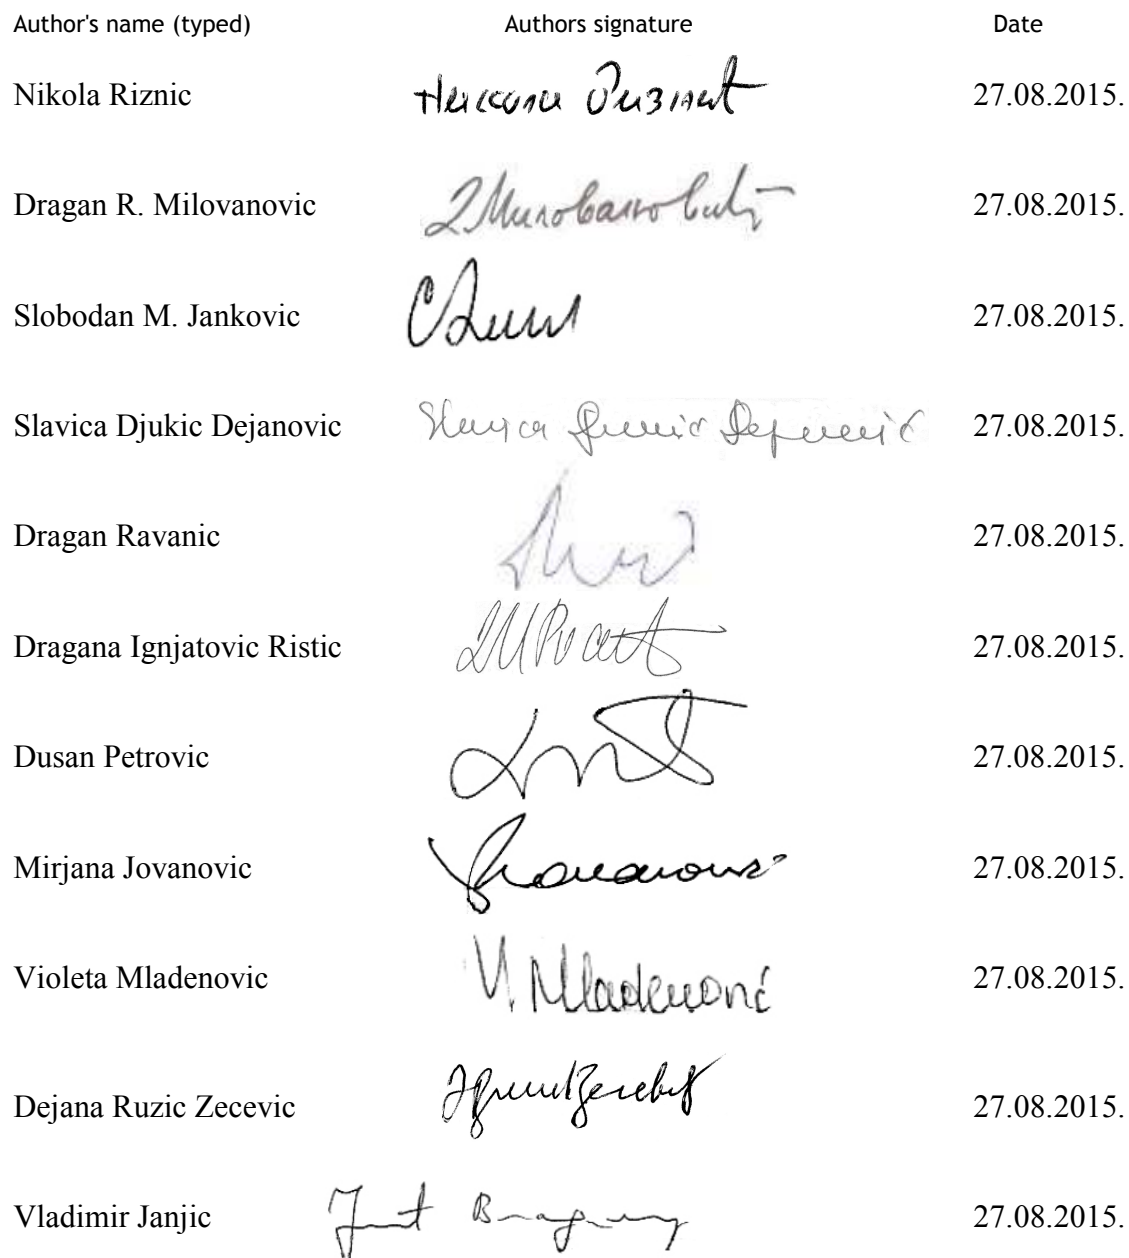 Author's name (typed) Authors signature Date
Nikola Riznic Никола Ризнић 27.08.2015.
Dragan R. Milovanovic ДМиловановић 27.08.2015.
Slobodan M. Jankovic 27.08.2015.
Slavica Djukic Dejanovic 27.08.2015.
Dragan Ravanic 27.08.2015.
Dragana Ignjatovic Ristic 27.08.2015.
Dusan Petrovic 27.08.2015.
Mirjana Jovanovic 27.08.2015.
Violeta Mladenovic V. Mladenović 27.08.2015.
Dejana Ruzic Zecevic 27.08.2015.
Vladimir Janjic 27.08.2015.